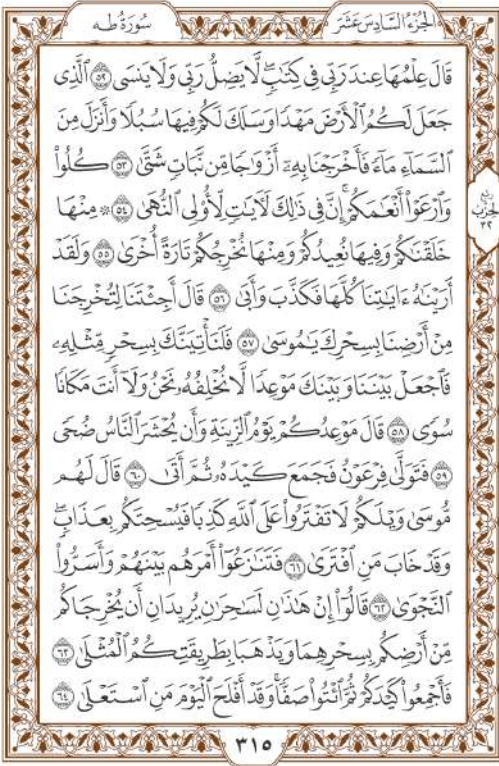 الجُزْءُ السَّادِسَ عَشَرَ
سُورَةُ طه
قَالَ عِلْمُهَا عِندَ رَبِّى فِى كِتَٰبٍۖ لَّا يَضِلُّ رَبِّى وَلَا يَنسَى ٥٢ ٱلَّذِى
جَعَلَ لَكُمُ ٱلْأَرْضَ مَهْدًا وَسَلَكَ لَكُمْ فِيهَا سُبُلًا وَأَنزَلَ مِنَ
ٱلسَّمَآءِ مَآءً فَأَخْرَجْنَا بِهِۦٓ أَزْوَٰجًا مِّن نَّبَاتٍ شَتَّىٰ ٥٣ كُلُوا۟
وَٱرْعَوْا۟ أَنْعَٰمَكُمْۗ إِنَّ فِى ذَٰلِكَ لَءَايَٰتٍ لِّأُو۟لِى ٱلنُّهَىٰ ٥٤ ۞ مِنْهَا
خَلَقْنَٰكُمْ وَفِيهَا نُعِيدُكُمْ وَمِنْهَا نُخْرِجُكُمْ تَارَةً أُخْرَىٰ ٥٥ وَلَقَدْ
أَرَيْنَٰهُ ءَايَٰتِنَا كُلَّهَا فَكَذَّبَ وَأَبَىٰ ٥٦ قَالَ أَجِئْتَنَا لِتُخْرِجَنَا
مِنْ أَرْضِنَا بِسِحْرِكَ يَٰمُوسَىٰ ٥٧ فَلَنَأْتِيَنَّكَ بِسِحْرٍ مِّثْلِهِۦ
فَٱجْعَلْ بَيْنَنَا وَبَيْنَكَ مَوْعِدًا لَّا نُخْلِفُهُۥ نَحْنُ وَلَآ أَنتَ مَكَانًا
سُوًى ٥٨ قَالَ مَوْعِدُكُمْ يَوْمُ ٱلزِّينَةِ وَأَن يُحْشَرَ ٱلنَّاسُ ضُحًى
٥٩ فَتَوَلَّىٰ فِرْعَوْنُ فَجَمَعَ كَيْدَهُۥ ثُمَّ أَتَىٰ ٦٠ قَالَ لَهُم
مُّوسَىٰ وَيْلَكُمْ لَا تَفْتَرُوا۟ عَلَى ٱللَّهِ كَذِبًا فَيُسْحِتَكُم بِعَذَابٍۖ
وَقَدْ خَابَ مَنِ ٱفْتَرَىٰ ٦١ فَتَنَٰزَعُوٓا۟ أَمْرَهُم بَيْنَهُمْ وَأَسَرُّوا۟
ٱلنَّجْوَىٰ ٦٢ قَالُوٓا۟ إِنْ هَٰذَٰنِ لَسَٰحِرَٰنِ يُرِيدَانِ أَن يُخْرِجَاكُم
مِّنْ أَرْضِكُم بِسِحْرِهِمَا وَيَذْهَبَا بِطَرِيقَتِكُمُ ٱلْمُثْلَىٰ ٦٣
فَأَجْمِعُوا۟ كَيْدَكُمْ ثُمَّ ٱئْتُوا۟ صَفًّاۚ وَقَدْ أَفْلَحَ ٱلْيَوْمَ مَنِ ٱسْتَعْلَىٰ ٦٤
ربع
الحزب
٣٢
٣١٥